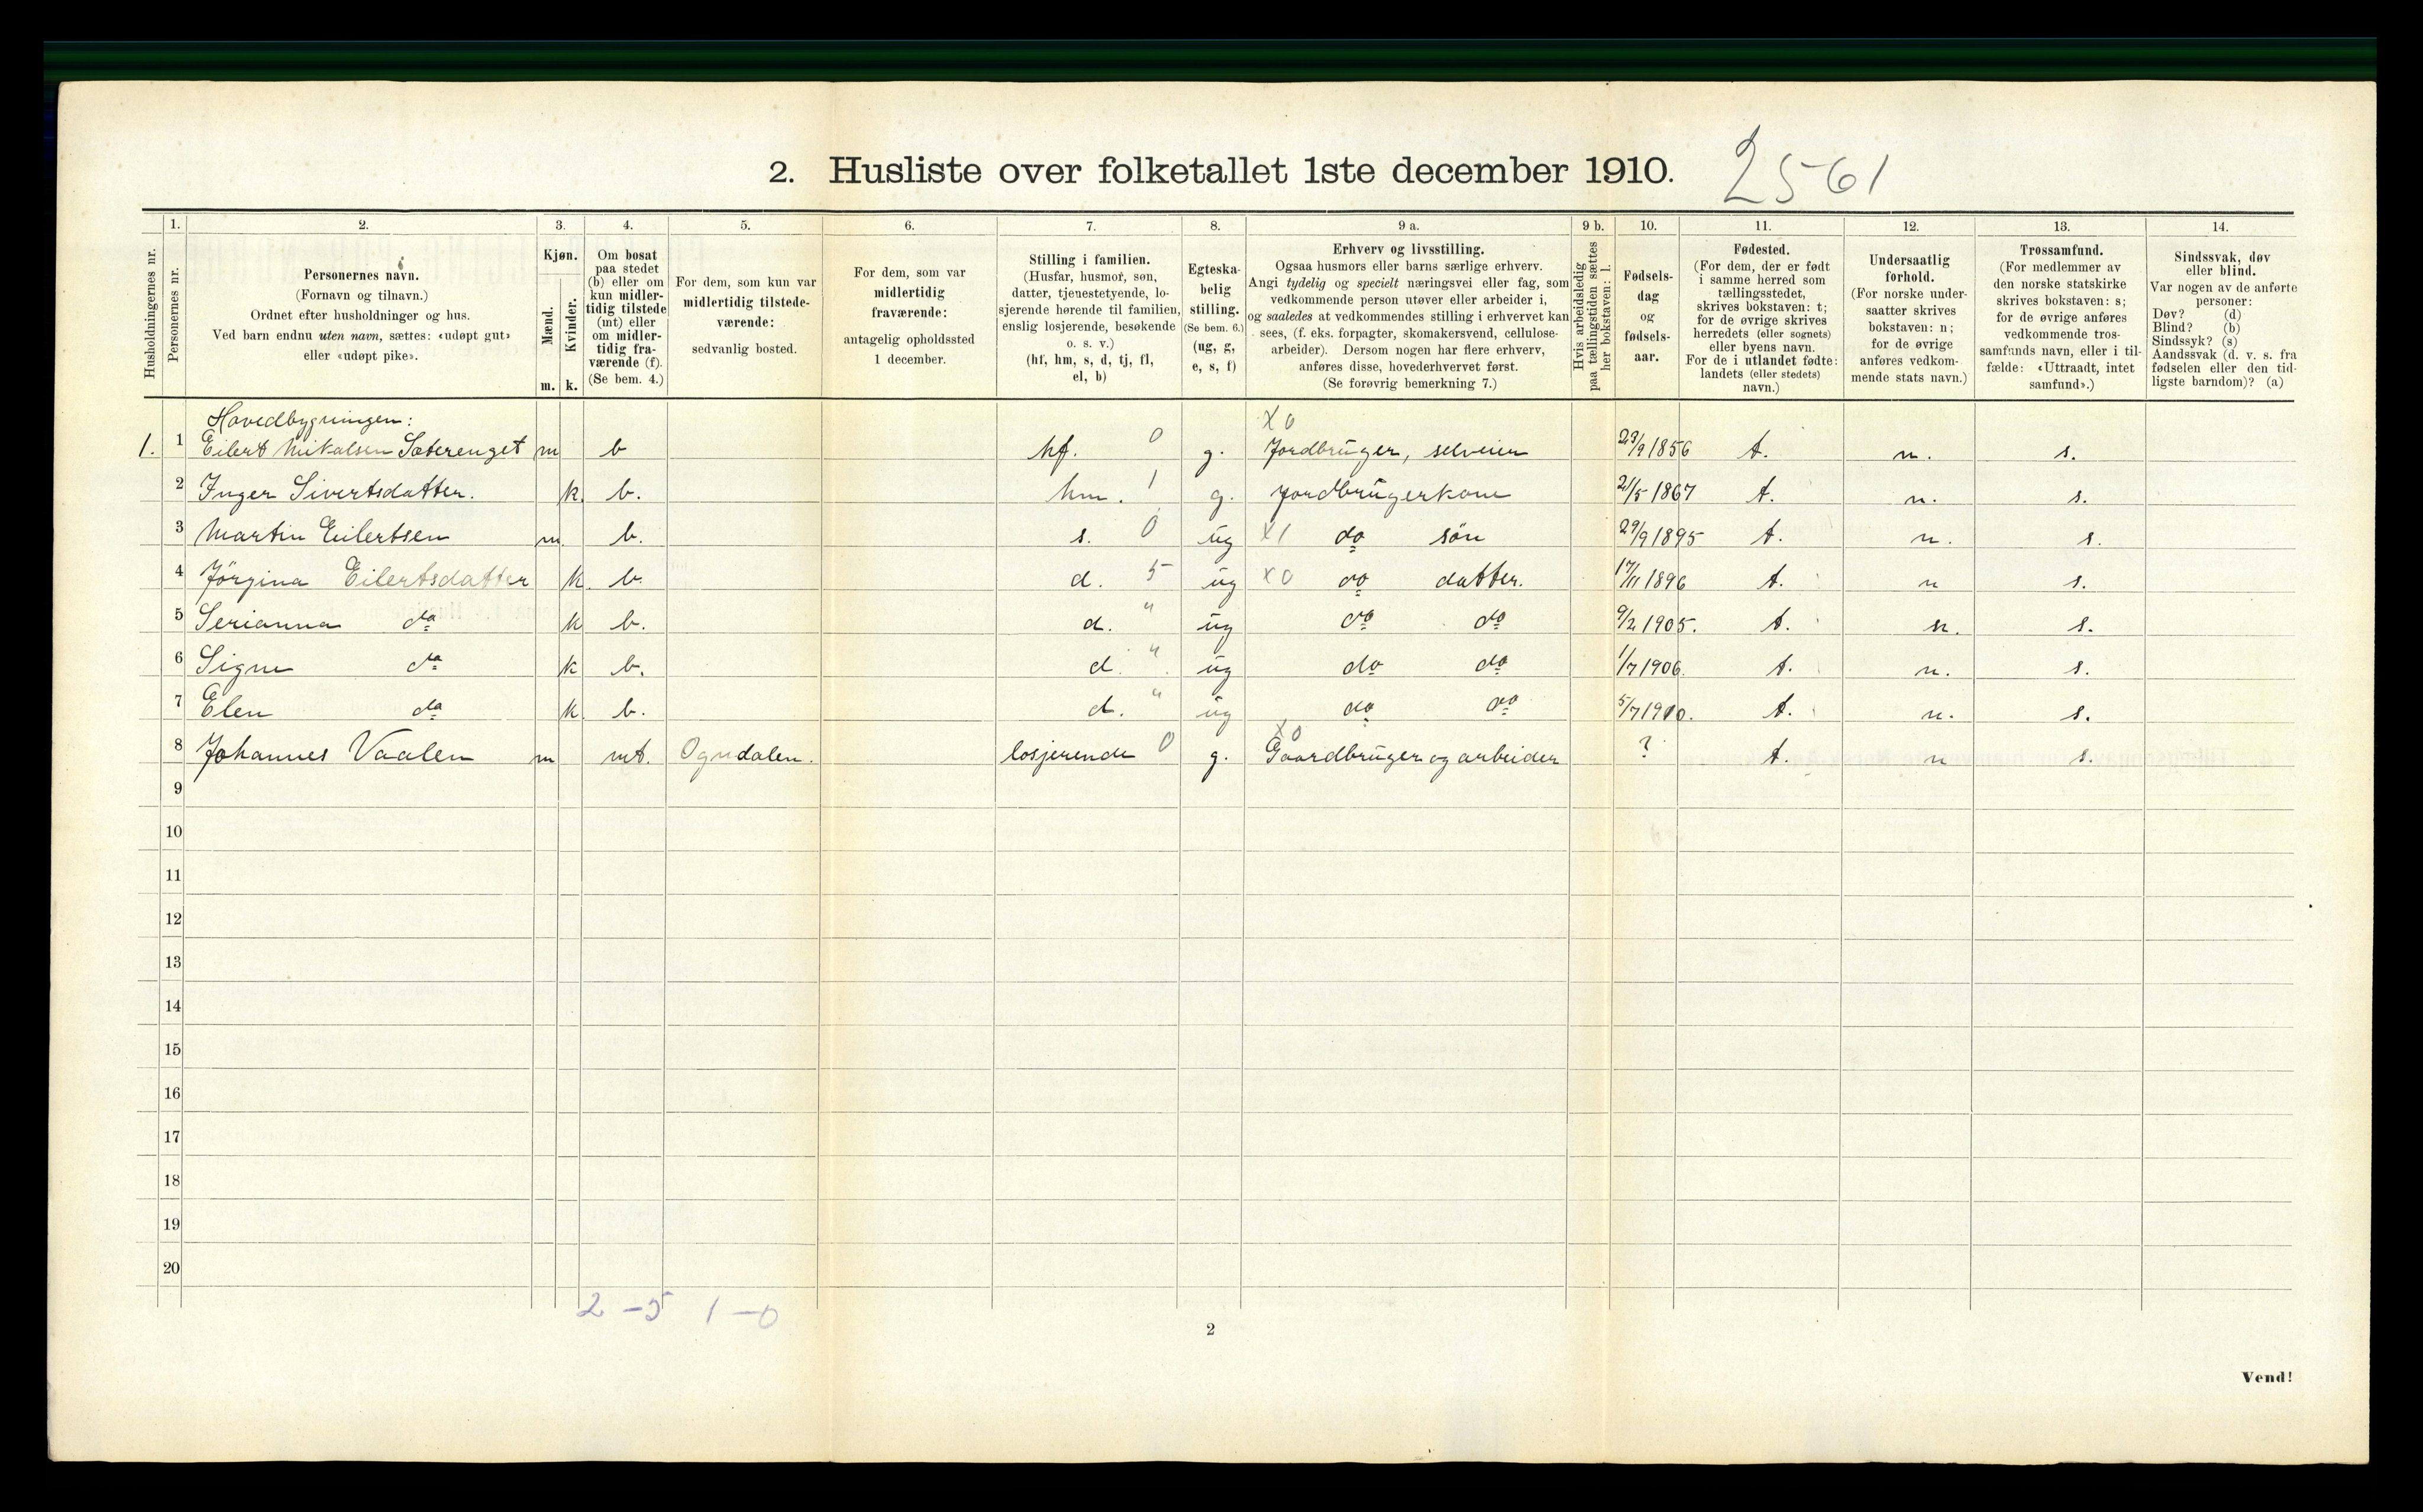 2. Husliste over folketallet 1ste december 1910. 2561
1. 2. 3. 4. 5. 6. 7. 8. 9 a. 9 b. 10. 11. 12. 13. 14.
Husholdningernes nr.
Personernes nr.
Personernes navn.
(Fornavn og tilnavn.)
Ordnet efter husholdninger og hus.
Ved barn endnu uten navn, sættes: «udøpt gut»
eller «udøpt pike».
Kjøn.
Mænd.
Kvinder.
m. k.
Om bosat
paa stedet
(b) eller om
kun midler-
tidig tilstede
(mt) eller
om midler-
tidig fra-
værende (f).
(Se bem. 4.)
For dem, som kun var
midlertidig tilstede-
værende:
sedvanlig bosted.
For dem, som var
midlertidig
fraværende:
antagelig opholdssted
1 december.
Stilling i familien.
(Husfar, husmor, søn,
datter, tjenestetyende, lo-
sjerende hørende til familien,
enslig losjerende, besøkende
o. s. v.)
(hf, hm, s, d, tj, fl,
el, b)
Egteska-
belig
stilling.
(Se bem. 6.)
(ug, g,
e, s, f)
Erhverv og livsstilling.
Ogsaa husmors eller barns særlige erhverv.
Angi tydelig og specielt næringsvei eller fag, som
vedkommende person utøver eller arbeider i,
og saaledes at vedkommendes stilling i erhvervet kan
sees, (f. eks. forpagter, skomakersvend, cellulose-
arbeider). Dersom nogen har flere erhverv,
anføres disse, hovederhvervet først.
(Se forøvrig bemerkning 7.)
Hvis arbeidsledig
paa tællingstiden sættes
her bokstaven: l.
Fødsels-
dag
og
fødsels-
aar.
Fødested.
(For dem, der er født
i samme herred som
tællingsstedet,
skrives bokstaven: t;
for de øvrige skrives
herredets (eller sognets)
eller byens navn.
For de i utlandet fødte:
landets (eller stedets)
navn.)
Undersaatlig
forhold.
(For norske under-
saatter skrives
bokstaven: n;
for de øvrige
anføres vedkom-
mende stats navn.)
Trossamfund.
(For medlemmer av
den norske statskirke
skrives bokstaven: s;
for de øvrige anføres
vedkommende tros-
samfunds navn, eller i til-
fælde: «Uttraadt, intet
samfund».)
Sindssvak, døv
eller blind.
Var nogen av de anførte
personer:
Døv? (d)
Blind? (b)
Sindssyk? (s)
Aandssvak (d. v. s. fra
fødselen eller den tid-
ligste barndom)? (a)
Hovedbygningen: X 0
1. 1 Eilert Mikalsen Sæterenget m b hf. 0 g. Jordbruger, selveier 23/9 1856 t. n. s.
2 Inger Sivertsdatter. k. b. hm. 1 g. Jordbrugerkone 21/5 1867 t. n. s.
3 Martin Eilertsen m. b. s. 0 ug X1 do søn 29/9 1895 t. n. s.
4 Jörgina Eilertsdatter k. b. d. 5 ug X0 do datter. 17/11 1896 t. n s.
5 Serianna do k b. d. " ug do do 9/2 1905. t. n. s.
6 Signe do k b. d. " ug do do 1/7 1906. t. n. s.
7 Elen do k. b. d. " ug do do 5/7 1910. t. n. s.
X0
8 Johannes Vaalen m mt. Ogndalen. losjerende 0 g. Gaardbruger og arbeider ? t. n s.
9
10
11
12
13
14
15
16
17
18
19
20
2 - 5 1 - 0
2
Vend!